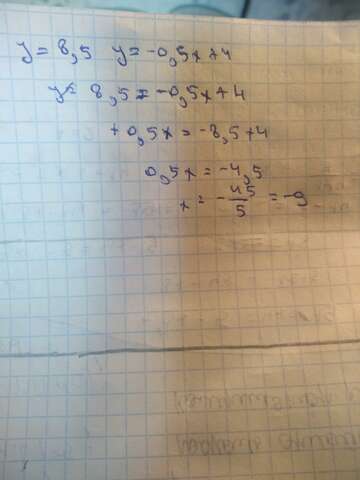 y = 8,5 y = -0,5x+4
y = 8,5 = -0,5x+4
+0,5x = -8,5+4
0,5x = -4,5
x = -45/5 = -9